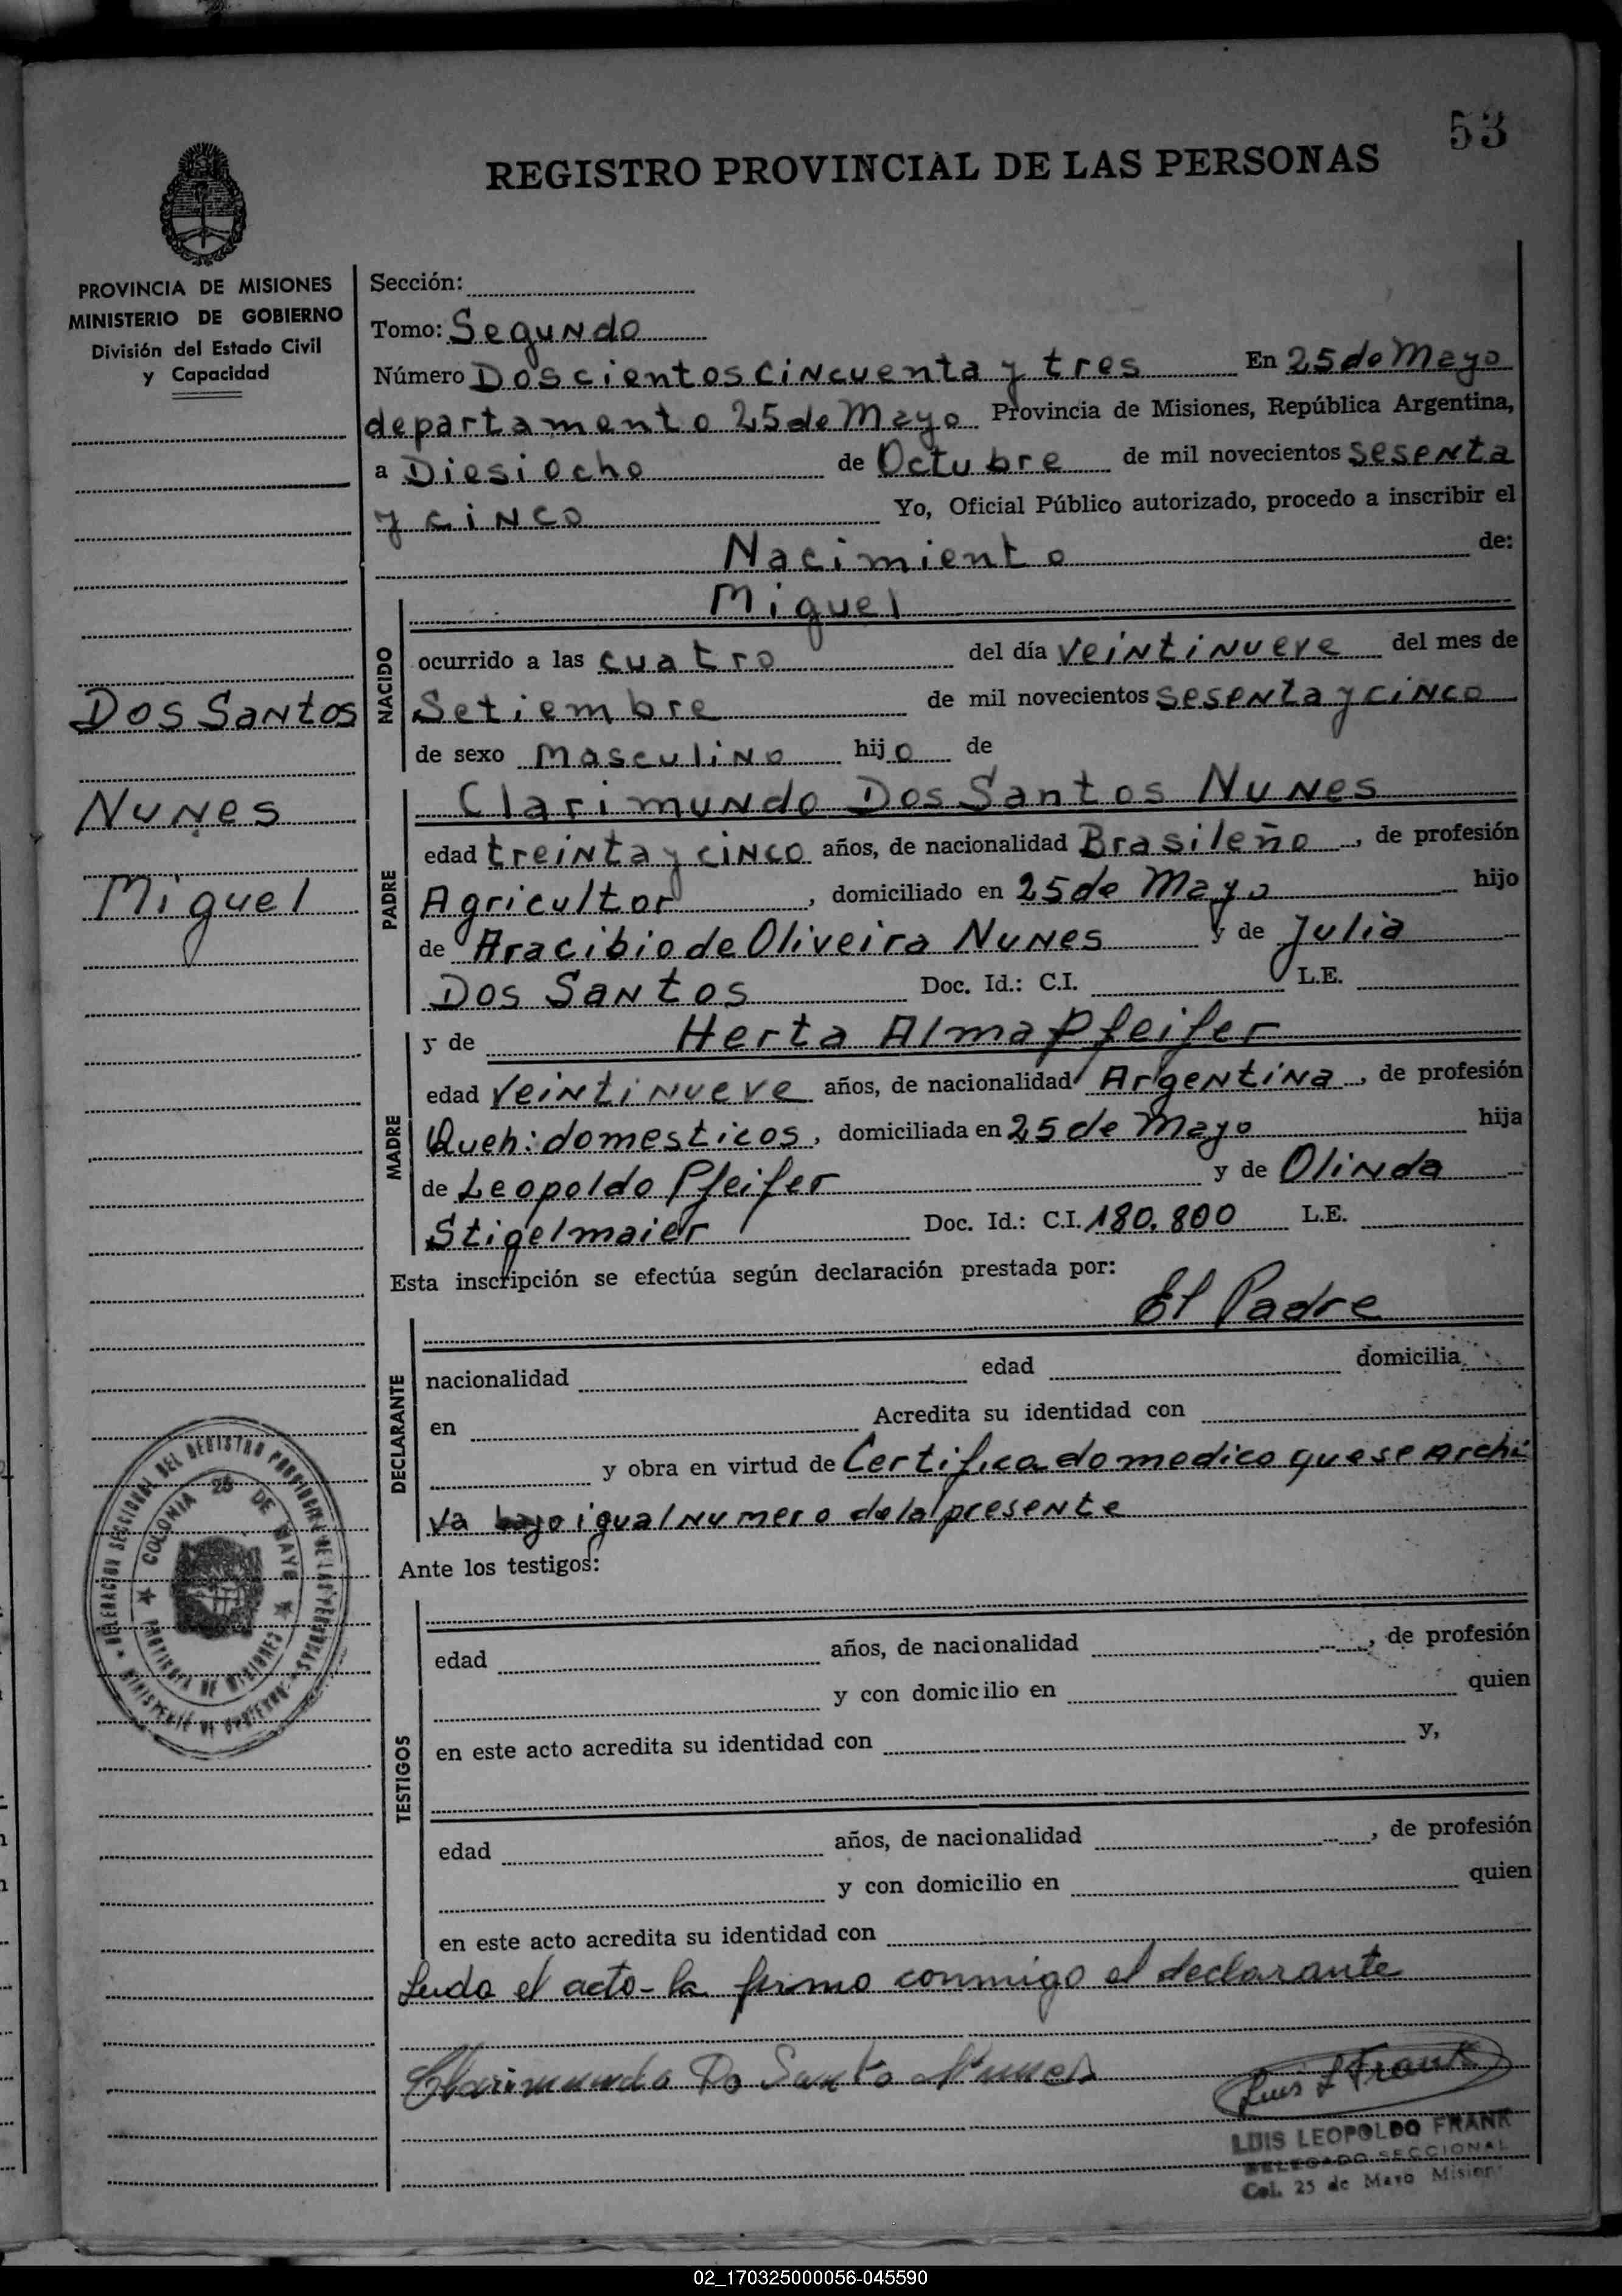 53
REGISTRO PROVINCIAL DE LAS PERSONAS
PROVINCIA DE MISIONES
MINISTERIO DE GOBIERNO
División del Estado Civil
y Capacidad
Dos Santos
Nunes
Miguel
Sección:
Tomo: Segundo
Número Doscientos cincuenta y tres En 25 de Mayo
departamento 25 de Mayo Provincia de Misiones, República Argentina,
a Diesiocho de Octubre de mil novecientos sesenta
y cinco Yo, Oficial Público autorizado, procedo a inscribir el
Nacimiento de:
Miguel
NACIDO
ocurrido a las cuatro del día veintinueve del mes de
Setiembre de mil novecientos sesenta y cinco
de sexo masculino hijo de
Clarimundo Dos Santos Nunes
PADRE
edad treinta y cinco años, de nacionalidad Brasileño, de profesión
Agricultor, domiciliado en 25 de Mayo hijo
de Aracibio de Oliveira Nunes y de Julia
Dos Santos Doc. Id.: C.I. L.E.
y de Herta Alma Pfeifer
MADRE
edad veintinueve años, de nacionalidad Argentina, de profesión
Queh: domesticos, domiciliada en 25 de Mayo hija
de Leopoldo Pfeifer y de Olinda
Stigelmaier Doc. Id.: C.I. 180.800 L.E.
Esta inscripción se efectúa según declaración prestada por:
El Padre
DECLARANTE
nacionalidad edad domicilia
en Acredita su identidad con
y obra en virtud de Certificado medico que se archi
va bajo igual numero de la presente
Ante los testigos:
TESTIGOS
edad años, de nacionalidad , de profesión
y con domicilio en quien
en este acto acredita su identidad con y,
edad años, de nacionalidad , de profesión
y con domicilio en quien
en este acto acredita su identidad con
Leida el acto - la firmo conmigo el declarante
Clarimundo Do Santo Nunes
Luis L Frank
LUIS LEOPOLDO FRANK
DELEGADO SECCIONAL
Col. 25 de Mayo Mision
DELEGACION SECCIONAL DEL REGISTRO PROVINCIAL DE LAS PERSONAS
MINISTERIO DE GOBIERNO
COLONIA 25 DE MAYO
PROVINCIA DE MISIONES
02_170325000056-045590